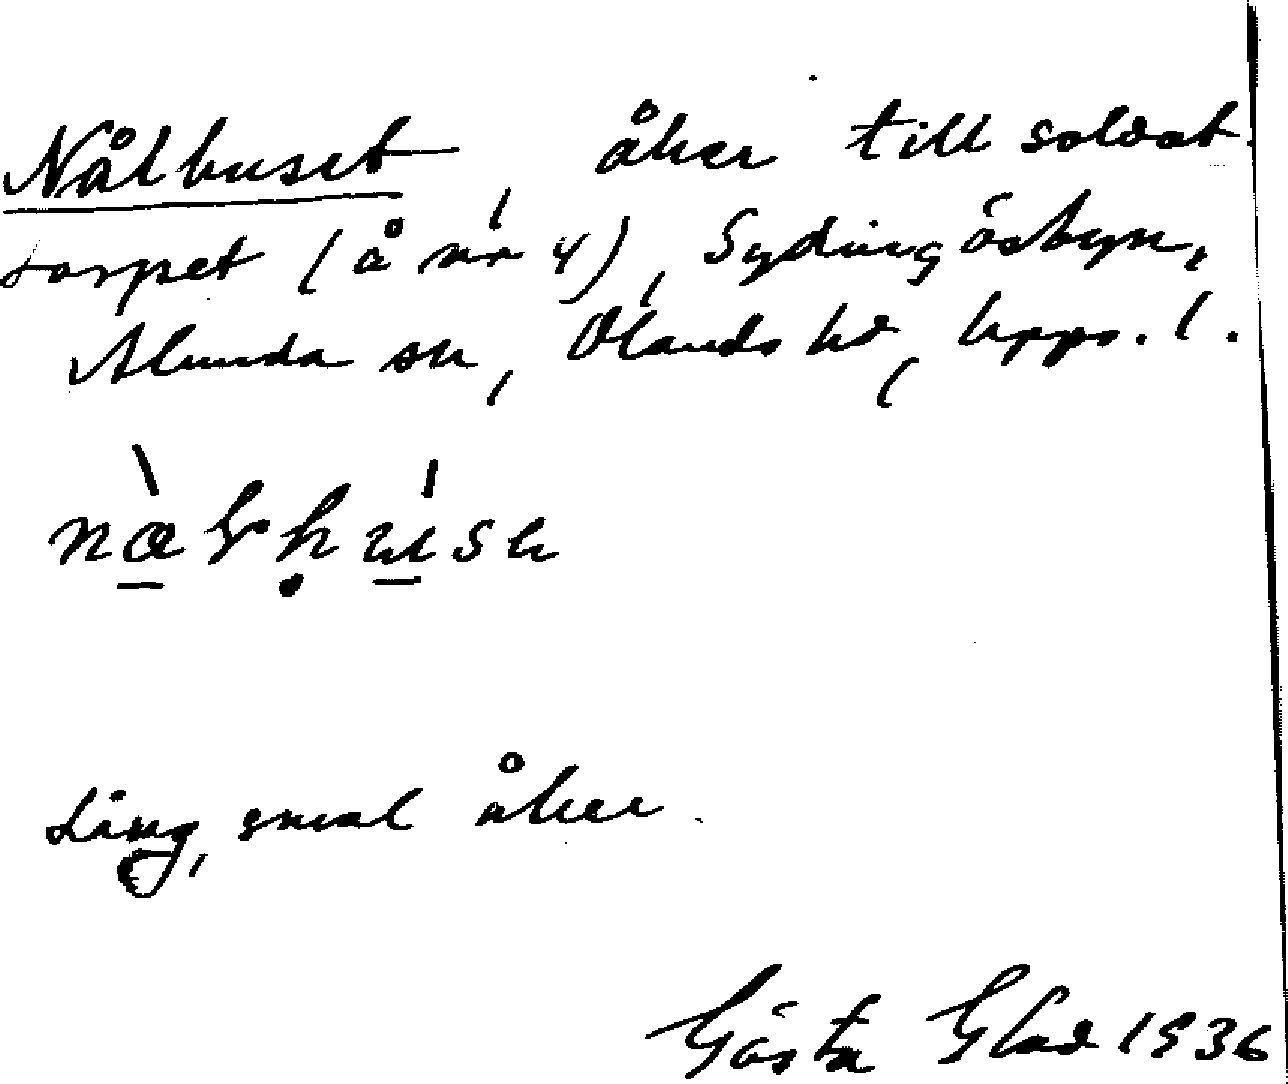 Nålhuset, åker till soldat-
torpet (å nr 4), Sydingösbyn,
Alunda sn, Olands hd, Upps. l.
Lång, smal åker.
Gösta Glad 1936